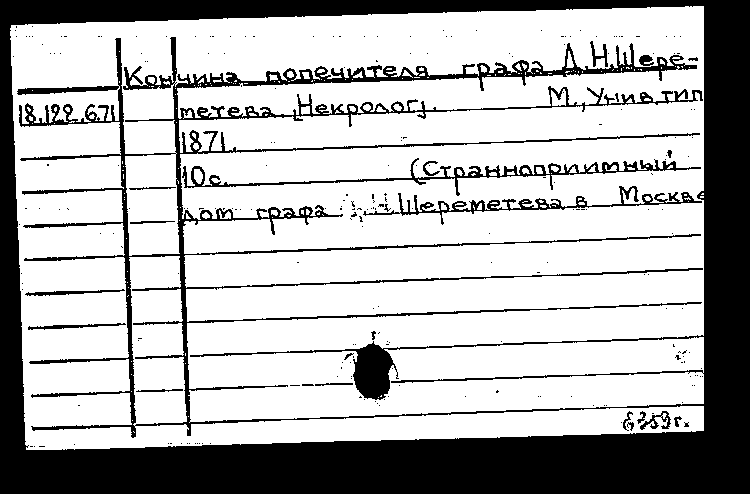 Кончина попечителя графа Д.Н.Шере-
18.122.6.71 метева. [Некролог]. М., Унив. тип
1871.
10с. (Странноприимный
дом графа Д.Н.Шереметева в Москве